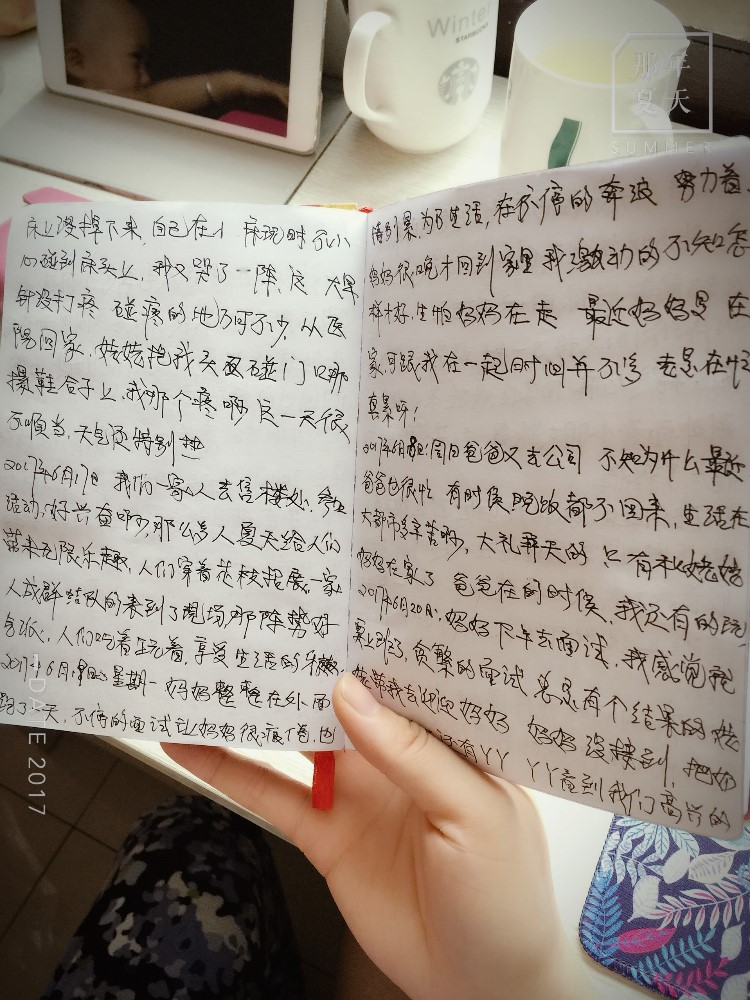 Winter
STARBUCKS
那年
夏天
SUMMER
床上没掉下来,自己在小床玩时不小
心碰到床头上,我又哭了一阵,这大果
针没打疼 碰疼的地方可不少,从医
院回家,姥姥抱我头又碰门口那
摆鞋合子上,我那个疼啊 这一天很
不顺当,天气还特别热
2017年6月17日 我们一家人去售楼处,参加
活动,好兴奋啊,那么多人夏天给人们
带来无限乐趣,人们穿着花枝招展,一家
人成群结队的来到了现场那阵势好
人们吃着玩着,享受生活的乐趣.
2017年6月19日,星期一 妈妈整整在外面
跑了一天,不停的面试让妈妈很疲惫,也
特别累,为了生活,在不停的奔波 努力着.
妈妈很晚才回到家里 我激动的不知怎
样才好,生怕妈妈在走 最近妈妈是在
家,可跟我在一起时间并不多 老是在忙
真累呀!
2017年6月18日:周日爸爸又去公司 不知为什么最近
爸爸也很忙 有时侯晚饭都不回来,生活在
大都市多辛苦啊,大礼拜天的 只有我姥姥
妈妈在家了 爸爸在的时候,我还有的玩
2017年6月20日:妈妈下午去面试,我感觉我
要上到了,频繁的面试 总是有个结果的 姥
姥带我去迎迎妈妈 妈妈没接到,把如
有YY YY看到我们高兴的
DATE 2017